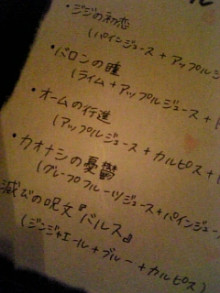 ・ジジの初恋
(パインジュース+アップルジ
・バロンの瞳
(ライム+アップルジュース+
・オームの行進
(アップルジュース+カルピス+
・カオナシの憂鬱
(グレープフルーツジュース+パインジュー
滅ビの呪文『バルス』
(ジンジャエール+ブルー+カルピス)